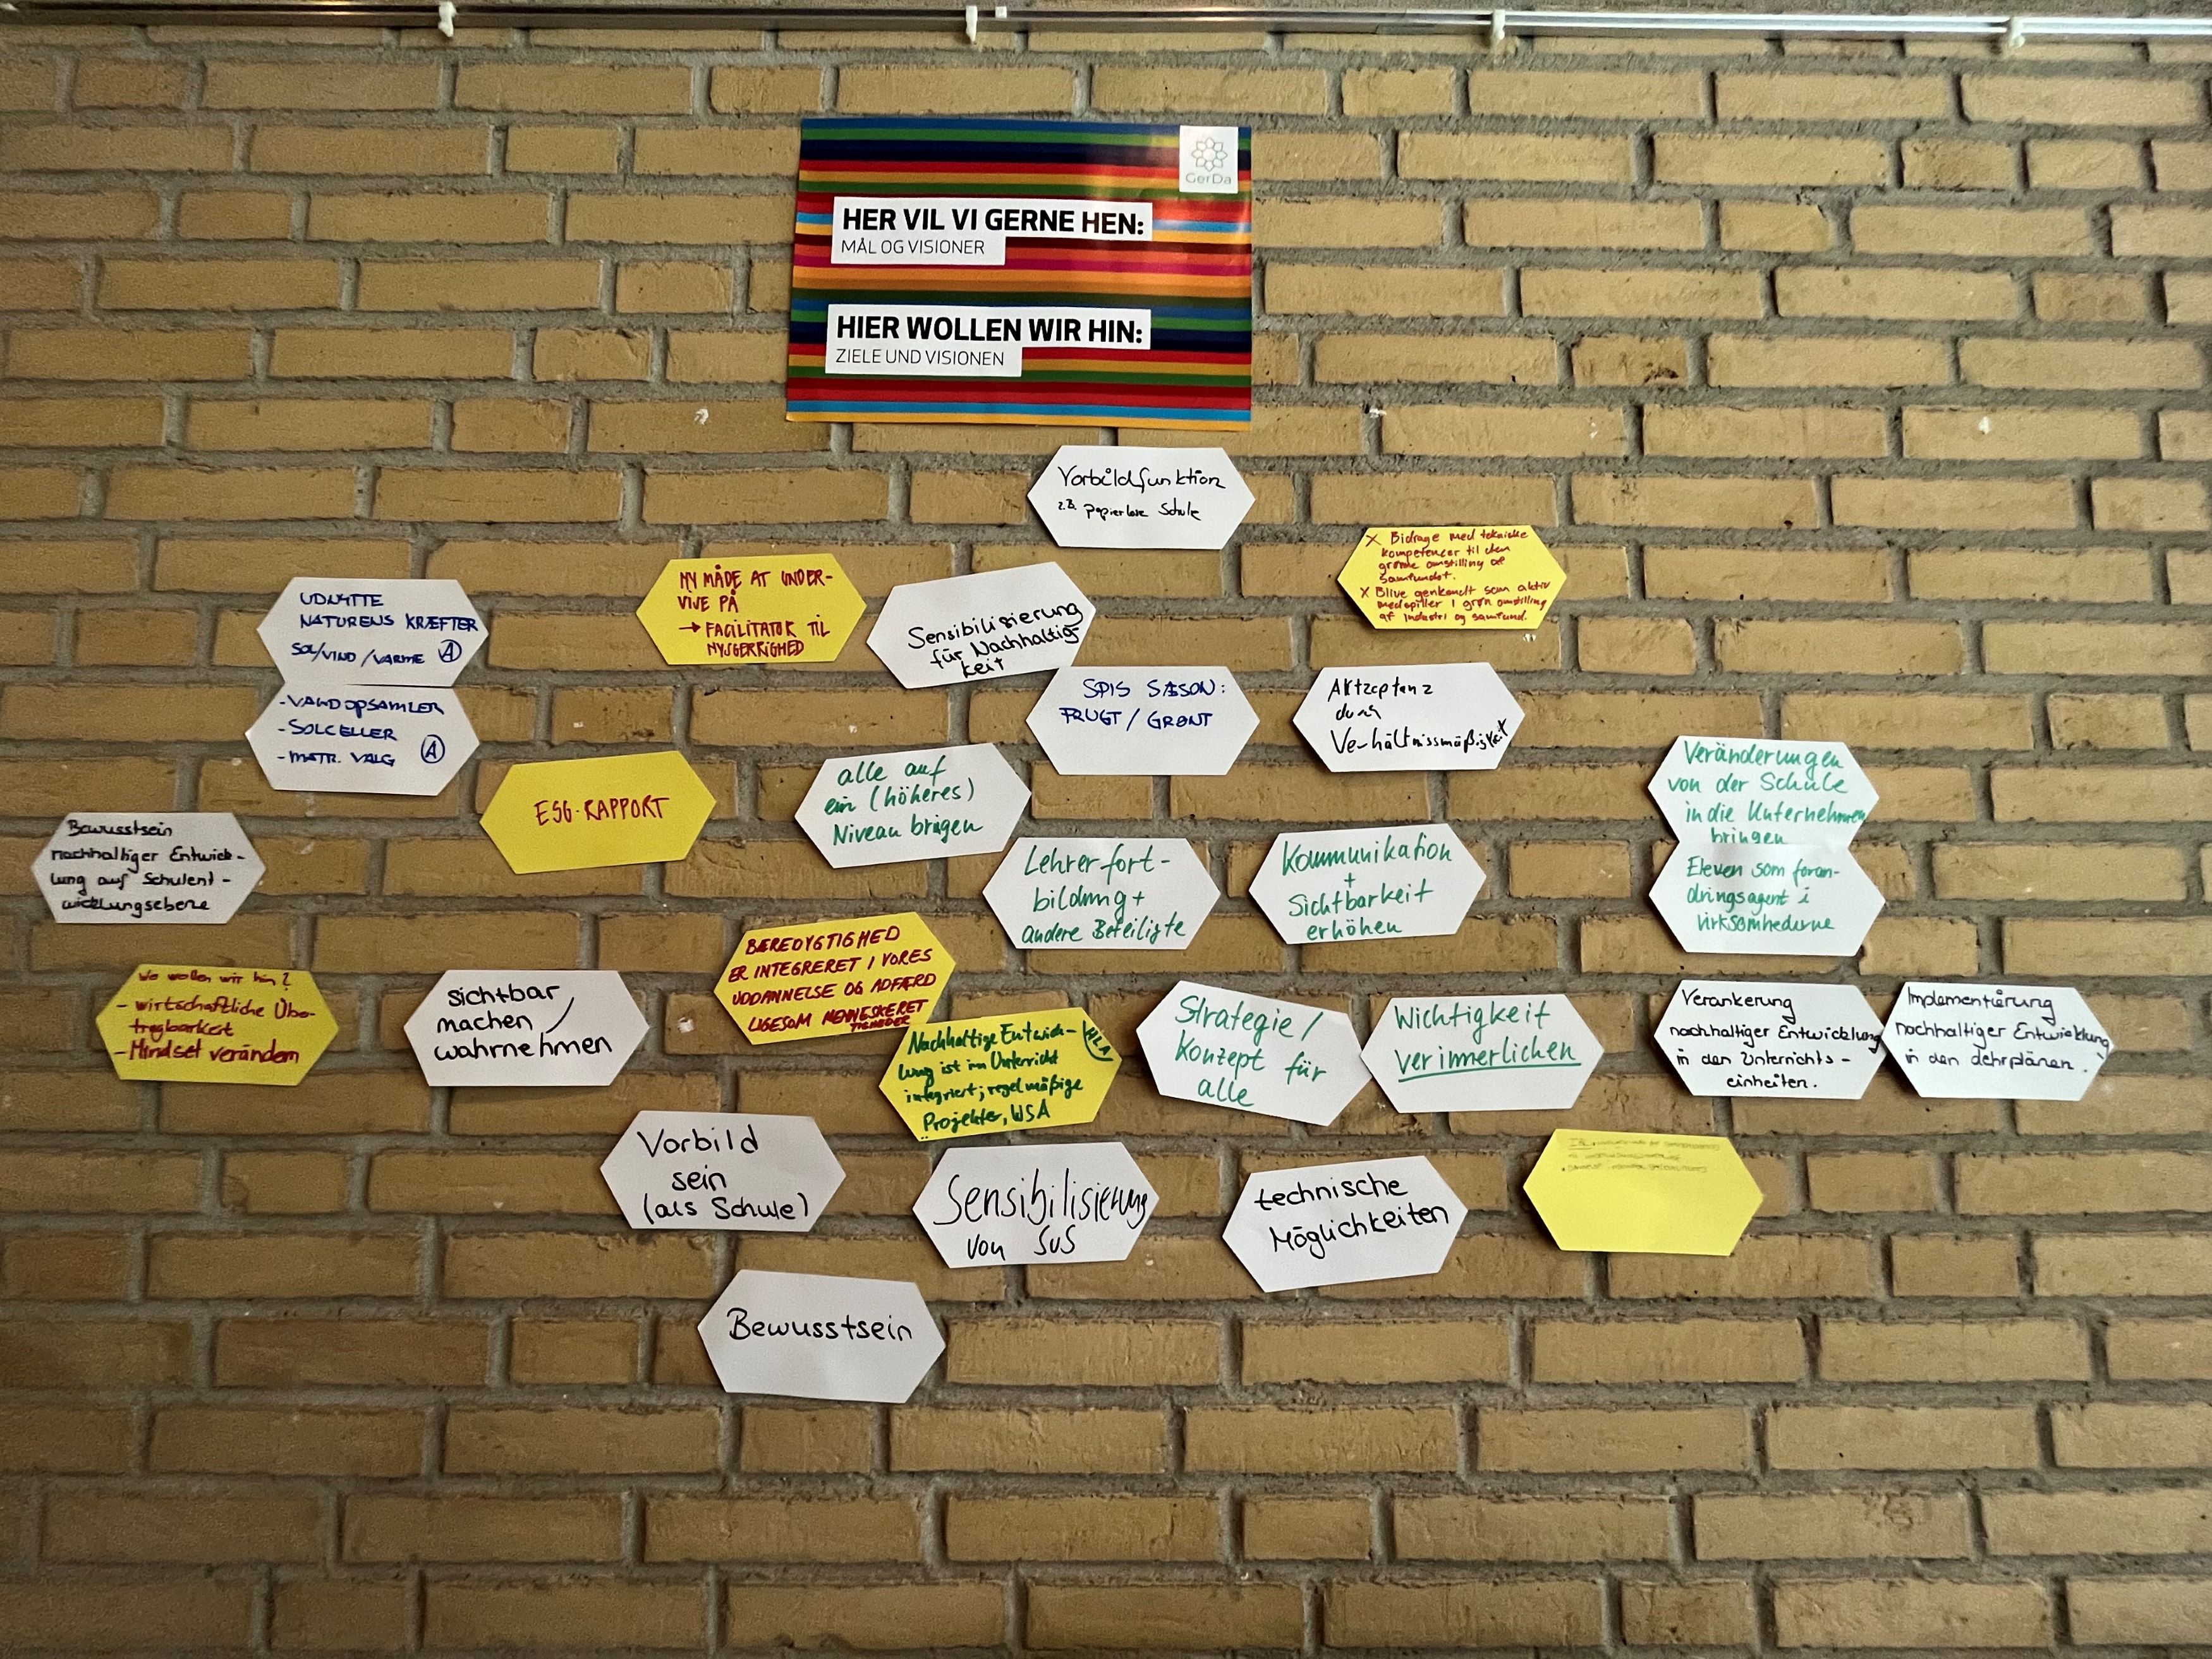 GerDa
HER VIL VI GERNE HEN:
MÅL OG VISIONER
HIER WOLLEN WIR HIN:
ZIELE UND VISIONEN
Vorbildfunktion
z.B. papierlose Schule
X Bidrage med tekniske
kompetencer til den
grønne omstilling af
samfundet.
X Blive genkendt som aktiv
medspiller i grøn omstilling
af industri og samfund.
NY MÅDE AT UNDER-
VISE PÅ
→ FACILITATOR TIL
NYSGERRIGHED
Sensibilisierung
für Nachhaltig-
keit
UDNYTTE
NATURENS KRÆFTER
SOL/VIND/VARME A
- VANDOPSAMLER
- SOLCELLER
- MATR. VALG A
SPIS SÆSON:
FRUGT / GRØNT
Aktzeptanz
durch
Verhältnissmäßigkeit
ESG-RAPPORT
alle auf
ein (höheres)
Niveau brigen
Veränderungen
von der Schule
in die Unternehmen
bringen
Eleven som foran-
dringsagent i
virksomhederne
Bewusstsein
nachhaltiger Entwick-
lung auf Schulent-
wicklungsebene
Lehrerfort-
bildung +
andere Beteiligte
Kommunikation
+
Sichtbarkeit
erhöhen
BÆREDYGTIGHED
ER INTEGRERET I VORES
UDDANNELSE OG ADFÆRD
LIGESOM MENNESKERET
TIGHEDER
Wo wollen wir hin?
- wirtschaftliche Über-
tragbarkeit
- Mindset verändern
sichtbar
machen /
wahrnehmen
Nachhaltige Entwick-
lung ist im Unterricht
integriert; regelmäßige
Projekte, WSA
HLA
Strategie /
Konzept für
alle
Wichtigkeit
verinnerlichen
Verankerung
nachhaltiger Entwicklung
in den Unterrichts-
einheiten.
Implementierung
nachhaltiger Entwicklung
in den Lehrplänen.
Vorbild
sein
(als Schule)
Sensibilisierung
von SuS
technische
Möglichkeiten
Bewusstsein